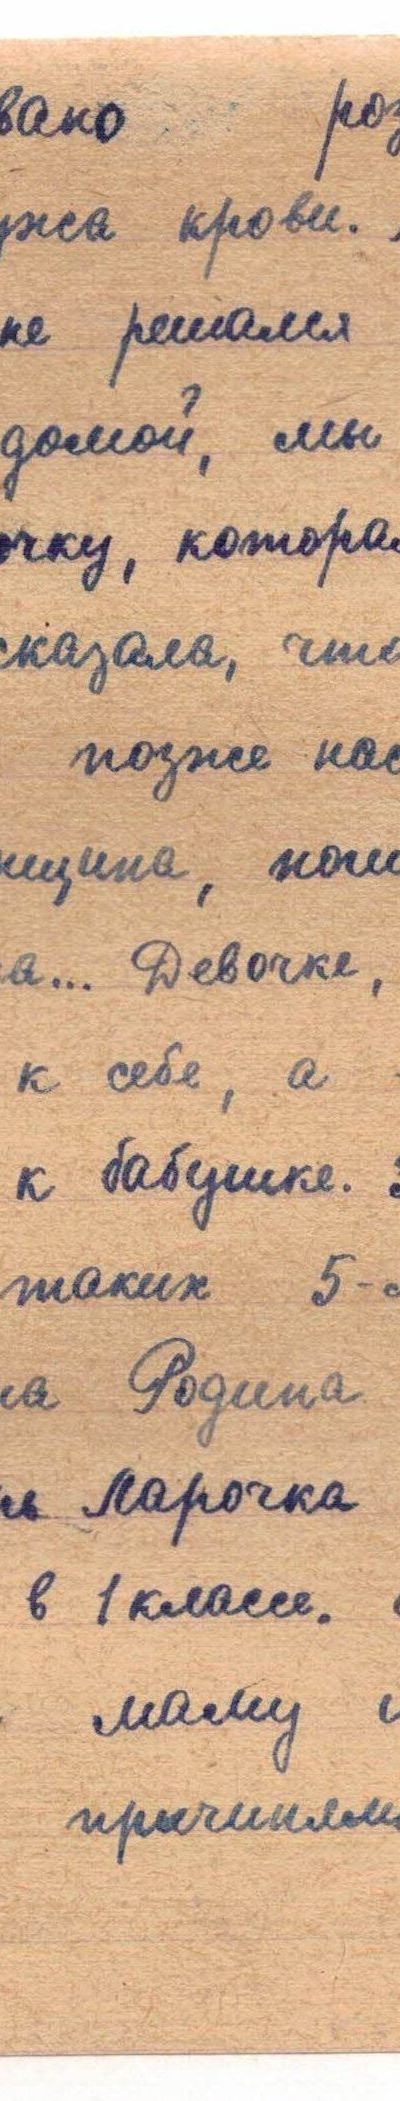 вано роз
ужса крови.
не решался
домой, мы
очку, которая
сказала, что
позже нас
нщина, поги
а... Девочке,
к себе, а
к бабушке.
таких 5-
на Родина
ь Ларочка
в 1 классе.
маму и
причинями